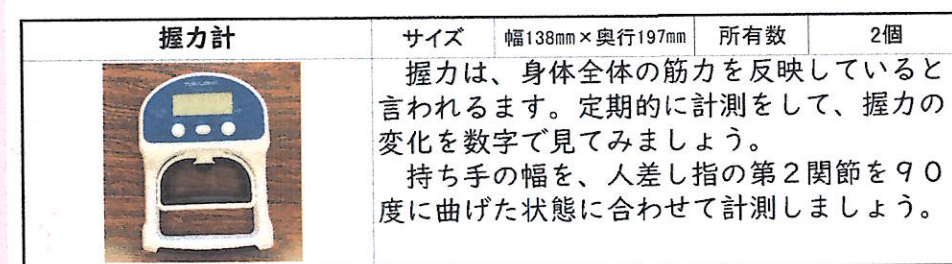 握力計 サイズ 幅138mm×奥行197mm 所有数 2個
握力は、身体全体の筋力を反映していると
言われるます。定期的に計測をして、握力の
変化を数字で見てみましょう。
持ち手の幅を、人差し指の第2関節を90
度に曲げた状態に合わせて計測しましょう。